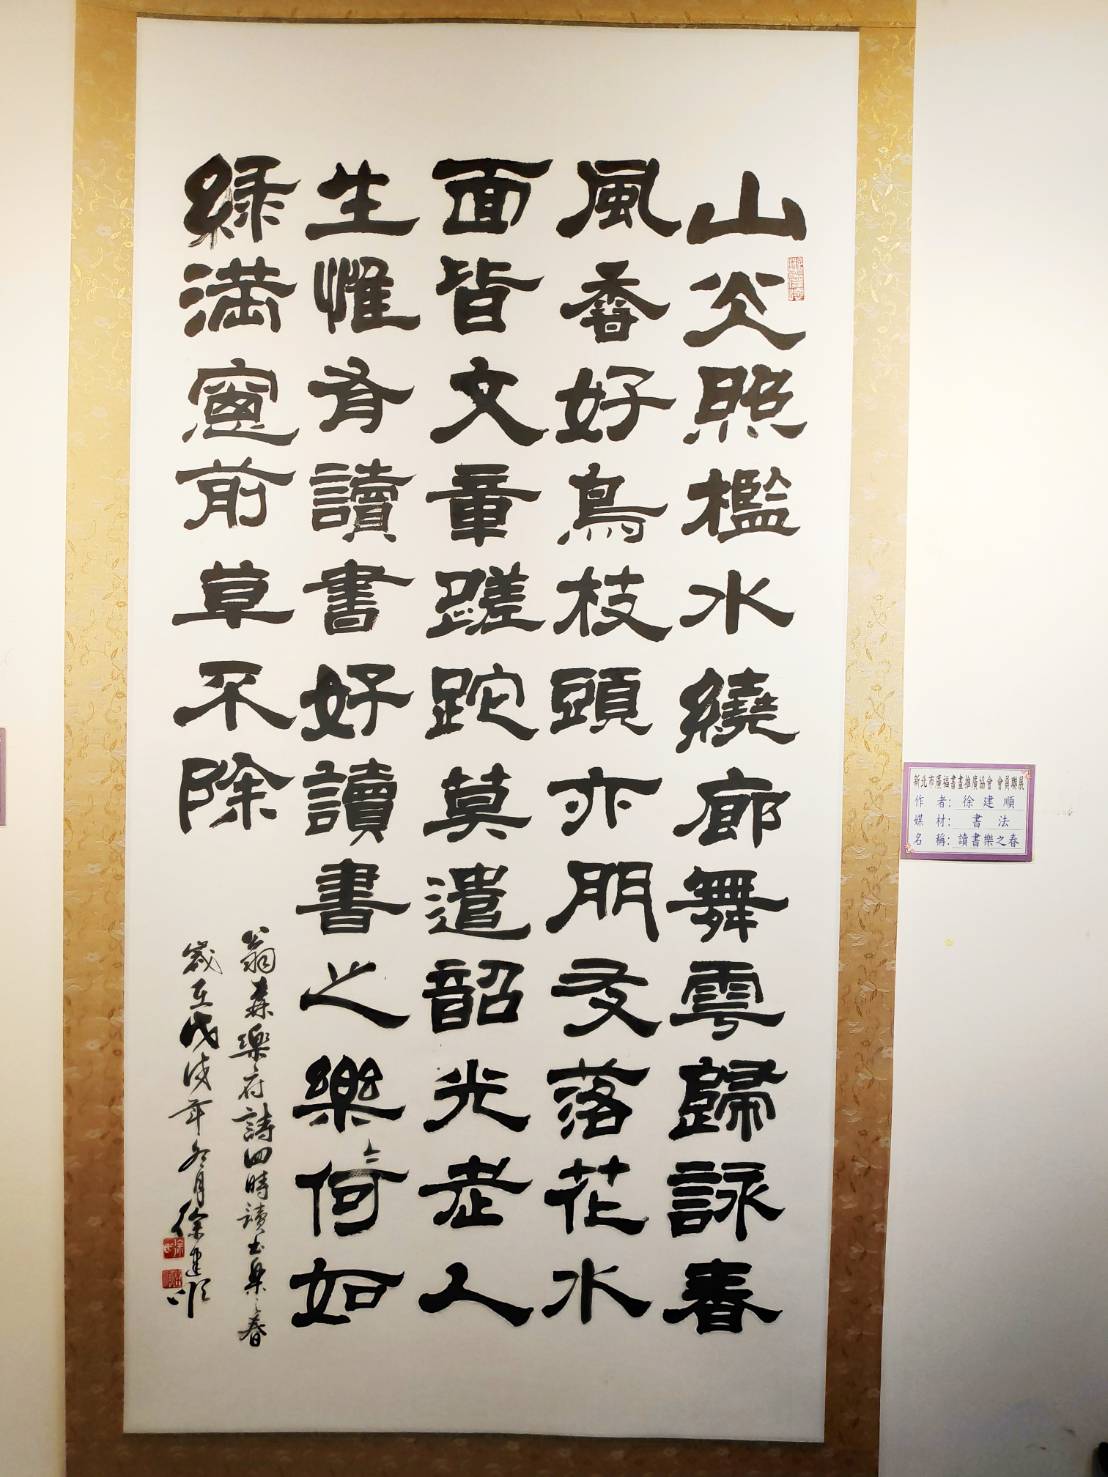 山光照檻水繞廊舞雩歸詠春
風香好鳥枝頭亦朋友落花水
面皆文章蹉跎莫遣韶光老人
生惟有讀書好讀書之樂樂何如
綠滿窗前草不除
翁森樂府詩四時讀書樂春
歲在戊戌年冬月徐建順
新北市廣福書畫推廣協會 會員聯展
作 者: 徐 建 順
媒 材: 書 法
名 稱: 讀書樂之春